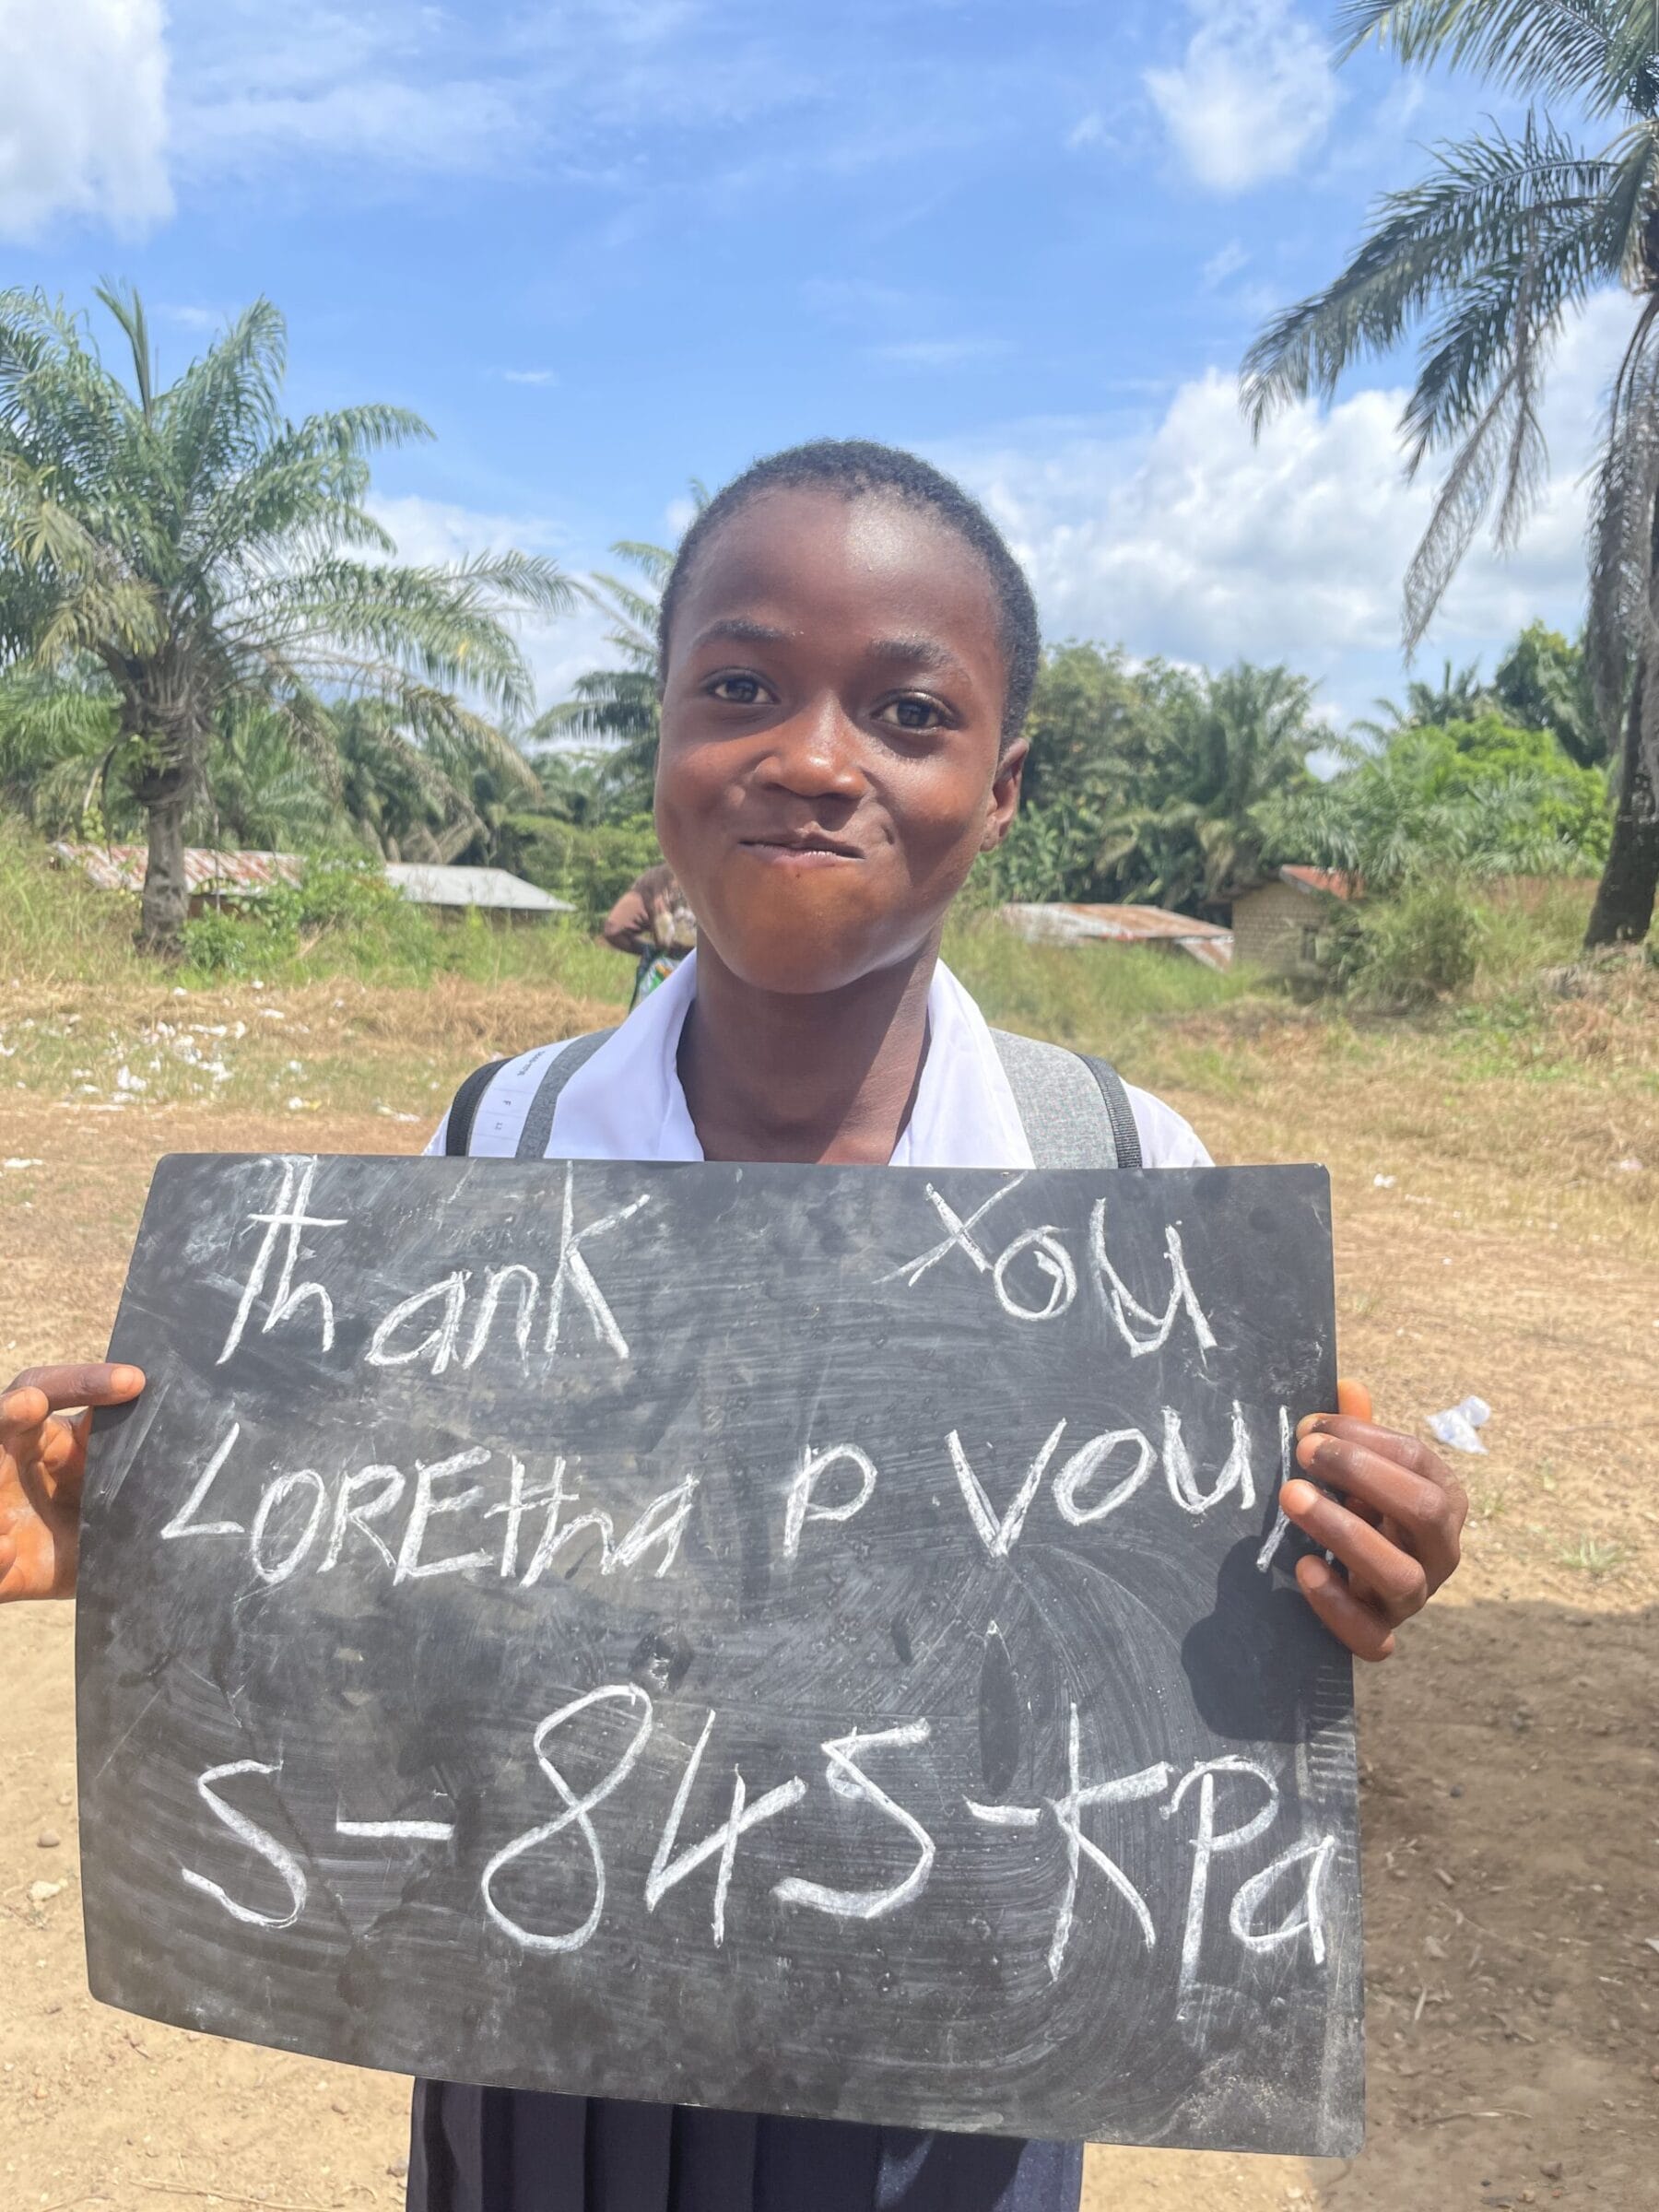 thank You
LOREtha P VOU
S-845-KPa